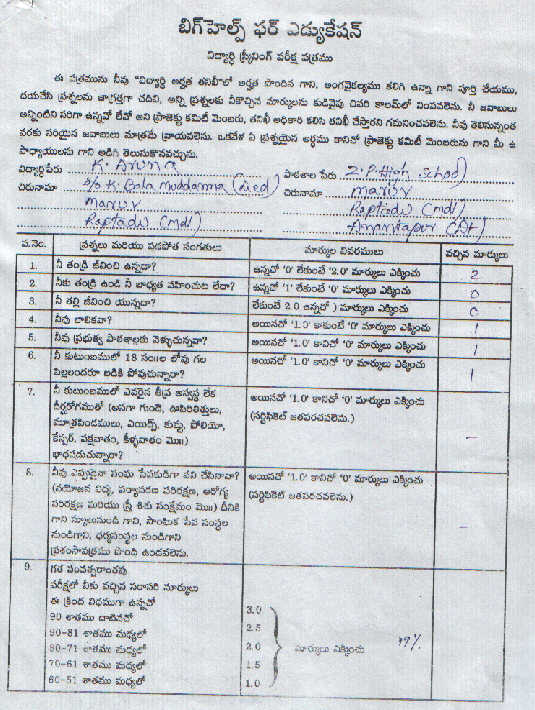 బిగ్‌హెల్ప్ ఫర్ ఎడ్యుకేషన్
విద్యార్థి స్క్రీనింగ్ పరీక్ష పత్రము
ఈ పత్రమును నీవు "విద్యార్థి అర్హత తనిఖీ"లో అర్హత పొందిన గాని, అంగవైకల్యము కలిగి ఉన్నా గాని పూర్తి చేయుము,
దయచేసి ప్రశ్నలను జాగ్రత్తగా చదివి, అన్ని ప్రశ్నలకు నీకొచ్చిన మార్కులను కుడివైపు చివరి కాలమ్‌లో నింపవలెను. నీ జవాబులు
అన్నింటిని సరిగా ఉన్నవో లేవో అని ప్రాజెక్టు కమిటీ మెంబరు, తనిఖీ అధికారి కలిసి తనిఖీ చేస్తారని గమనించవలెను. నీవు తెలిసినంత
వరకు సరియైన జవాబులు మాత్రమే వ్రాయవలెను. ఒకవేళ ఏ ప్రశ్నయైన అర్థము కానిచో ప్రాజెక్టు కమిటీ మెంబరును గాని మీ ఉ
పాధ్యాయులను గాని అడిగి తెలుసుకొనవచ్చును.
విద్యార్థిపేరు K. Aruna పాఠశాల పేరు Z.P. High School
చిరునామా D/o K. Bala Muddanna (Died) చిరునామా Marur
Marur Raptadu (Mdl)
Raptadu (Mdl) Anantapur (Dt)
ప.నెం. ప్రశ్నలు మరియు పడపోత సంగతులు మార్కుల వివరములు వచ్చిన మార్కులు
1. నీ తండ్రి జీవించి ఉన్నడా? ఉన్నచో '0' లేకుంటే '2.0' మార్కులు ఎక్కించు 2
2. నీకు తండ్రి ఉండి నీ బాధ్యత వహించుట లేదా? ఉన్నచో '1' లేకుంటే '0' మార్కులు ఎక్కించు 0
3. నీ తల్లి జీవించి యున్నదా? లేకుంటే 2.0 ఉన్నచో ) మార్కులు ఎక్కించు 0
4. నీవు బాలికవా? అయినచో '1.0' కాకుంటే '0' మార్కులు ఎక్కించు 1
5. నీవు ప్రభుత్వ పాఠశాలకు వెళ్ళుచున్నవా? అయినచో '1.0' కానిచో '0' మార్కులు ఎక్కించు 1
6. నీ కుటుంబములో 18 సం॥ల లోపు గల అయినచో '1.0' కానిచో '0' మార్కులు ఎక్కించు 1
పిల్లలందరూ బడికి పోవుచున్నారా?
7. నీ కుటుంబములో ఎవరైన తీవ్ర అస్వస్థ లేక అయినచో '1.0' కానిచో '0' మార్కులు ఎక్కించు
దీర్ఘరోగముతో (అనగా గుండె, ఊపిరితిత్తులు, (సర్టిఫికెట్ జతపరచవలెను.)
మూత్రపిండములు, ఎయిడ్స్, కుష్ఠు, పోలియో, –
కేన్సర్, పక్షవాతం, కీళ్ళవాతం మొ॥)
భాధపడుచున్నారా?
8. నీవు ఎప్పుడైనా సంఘ సేవకుడిగా పని చేసినావా? అయినచో '1.0' కానిచో '0' మార్కులు ఎక్కించు
(వయోజన విద్య, పర్యావరణ పరిరక్షణ, ఆరోగ్య (సర్టిఫికెట్ జతపరచవలెను.)
సంరక్షణ మరియు స్త్రీ శిశు సంక్షేమం మొ॥) దీనికి
గాని స్కూలునుండి గాని, సాంఘిక సేవ సంస్థల –
నుండిగాని, ధర్మసంస్థల నుండిగాని
ప్రశంసాపత్రము పొంది ఉండవలెను.
9. గత సంవత్సరాంతపు
పరీక్షలో నీకు వచ్చిన సరాసరి మార్కులు
ఈ క్రింద విధముగా ఉన్నచో
90 శాతము దాటినచో 3.0
90-81 శాతము మధ్యలో 2.5
80-71 శాతము మధ్యలో 2.0 మార్కులు ఎక్కించు 49%
70-61 శాతము మధ్యలో 1.5
60-51 శాతము మధ్యలో 1.0